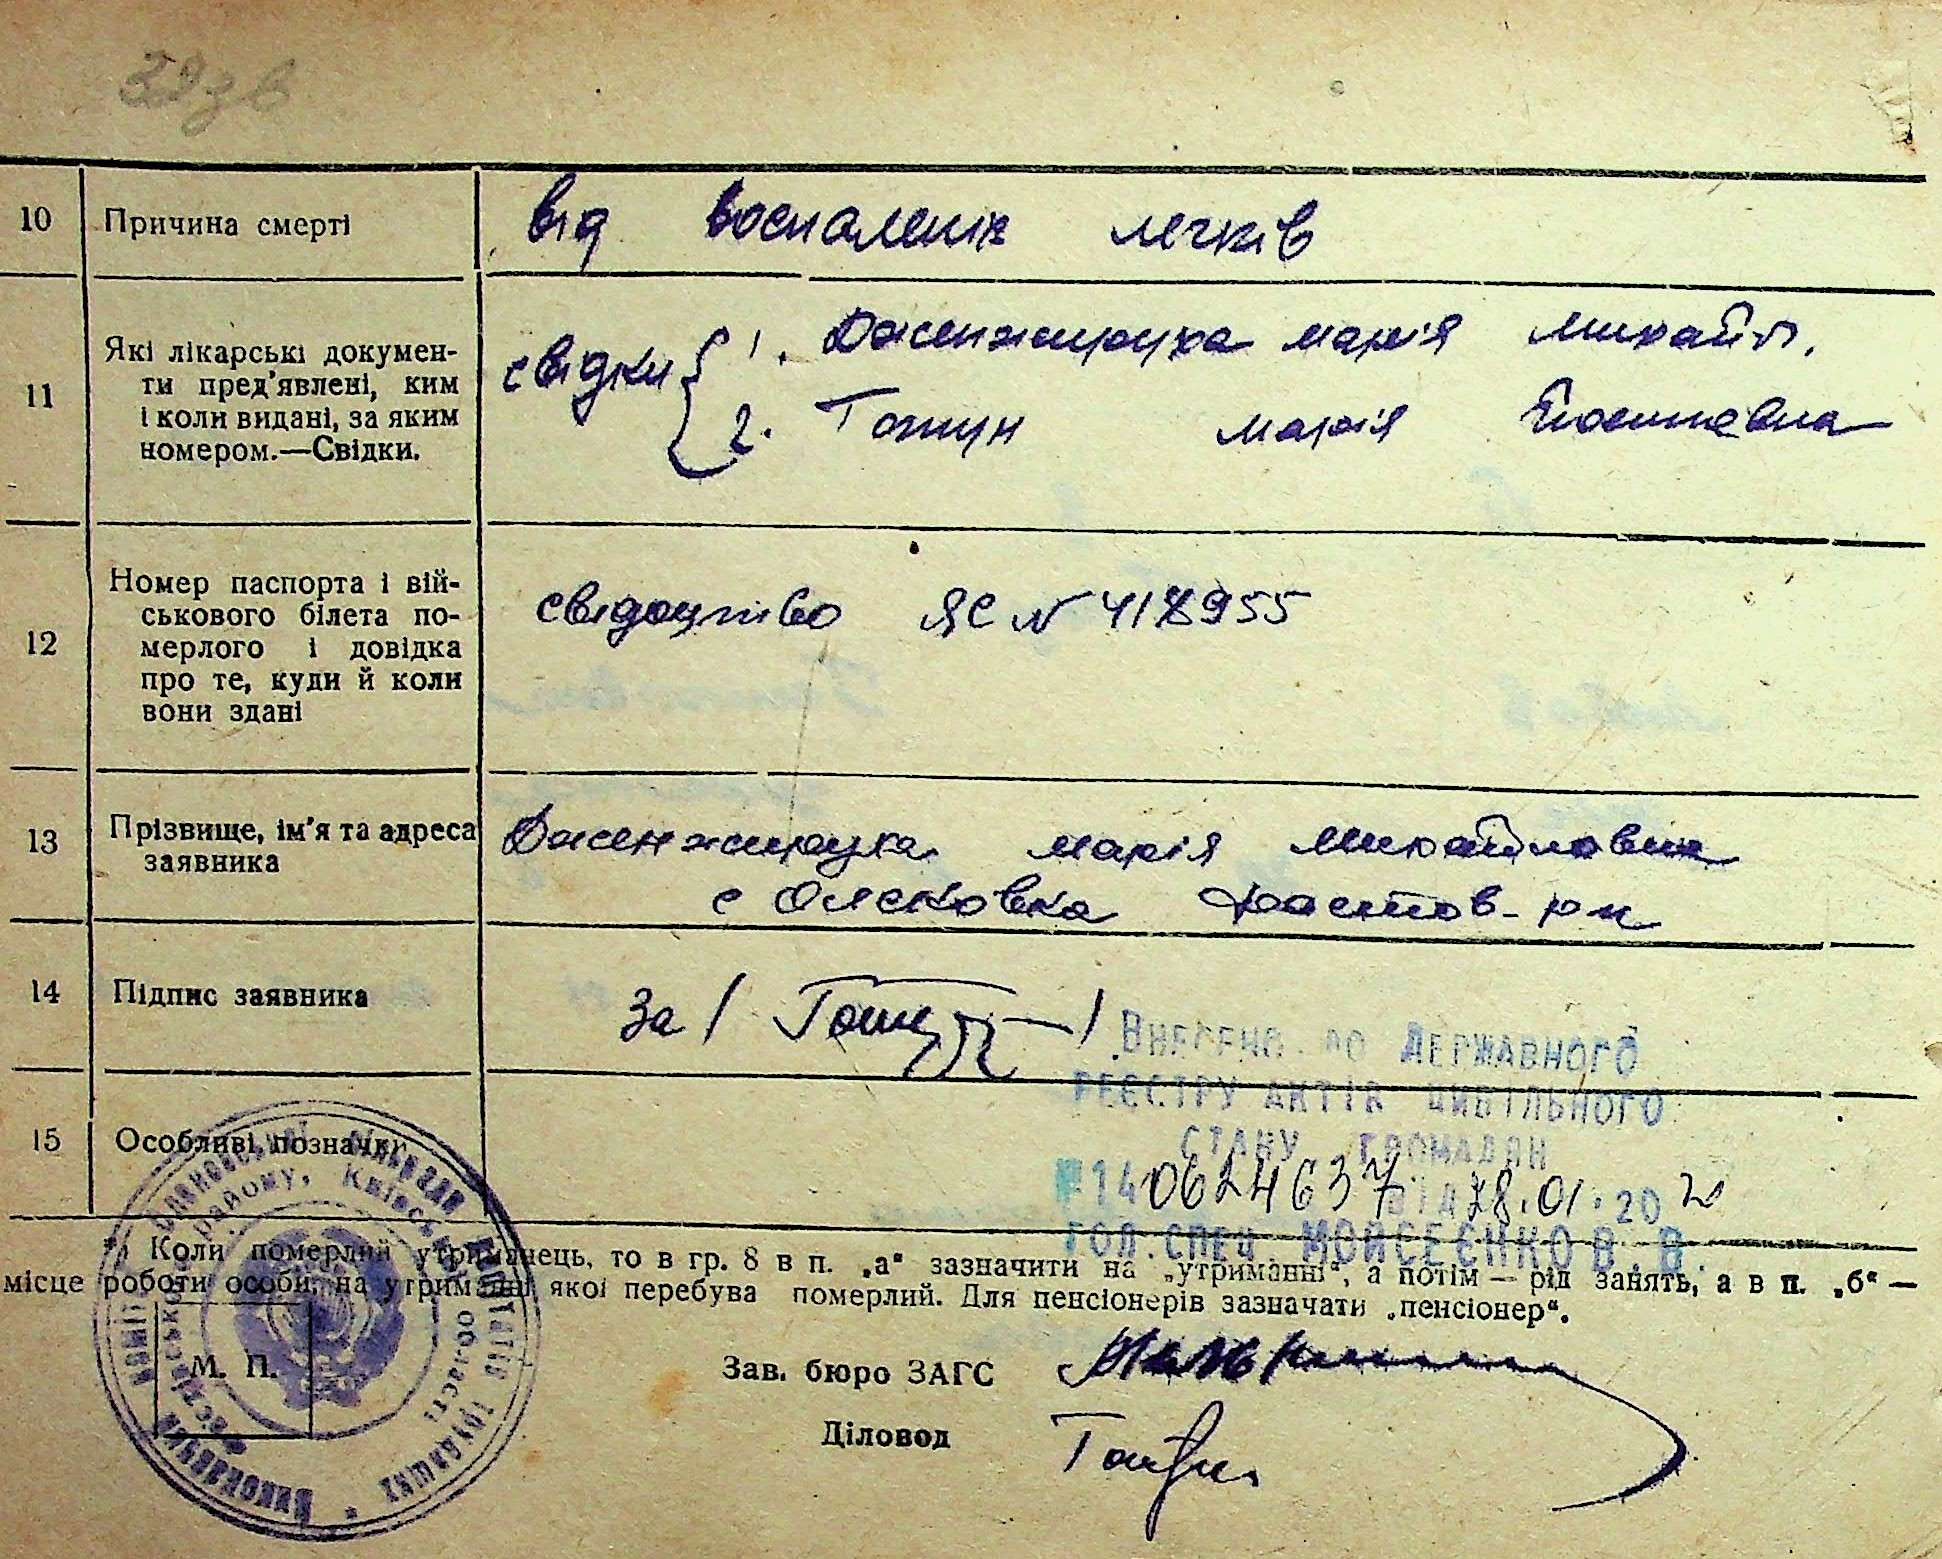 10 Причина смерті від воспаленія легків
11 Які лікарські докумен-
ти пред'явлені, ким
і коли видані, за яким
номером.—Свідки.
свідки { 1. Марія Михайл.
2. Готун Марія Йосипівна
12 Номер паспорта і вій-
ськового білета по-
мерлого і довідка
про те, куди й коли
вони здані
свідоцтво ЯС N 418955
13 Прізвище, ім'я та адреса
заявника
Марія Михайловна
с Олясковка Фастов-рн
14 Підпис заявника
За /
ВНЕСЕНО ДО ДЕРЖАВНОГО
РЕЄСТРУ АКТІВ ЦИВІЛЬНОГО
СТАНУ ГРОМАДЯН
15 Особливі позначки
№ 14 0624637 ВІД 28.01.202
ГОЛ.СПЕЦ. МОЙСЕЄНКО В.В.
*) Коли померлий утриманець, то в гр. 8 в п. „а“ зазначити на „утриманні“, а потім — рід занять, а в п. „б“ —
місце роботи особи, на утриманні якої перебував померлий. Для пенсіонерів зазначати „пенсіонер“.
М. П.
Зав. бюро ЗАГС
Діловод